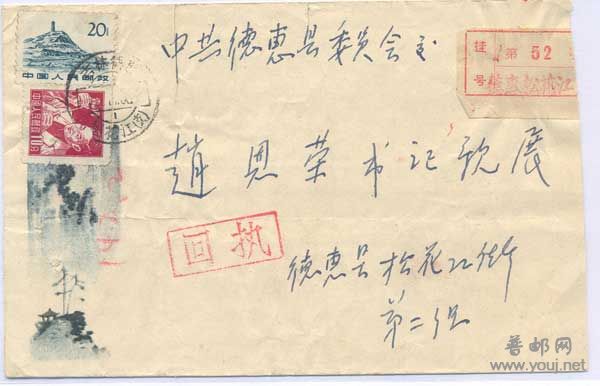 20分
中国人民邮政
中共德惠县委员会
挂 第 52
号
中国人民邮政
赵恩荣书记亲展
回执
德惠县松花江街
第二组
普邮网
www.youj.net